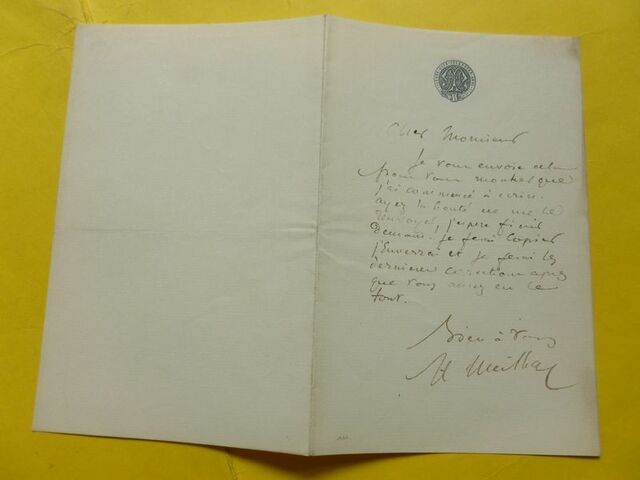 Cher Monsieur
Je vous envoie cela
pour vous montrer que
j'ai commencé à écrire.
ayez la bonté de me le
renvoyer, j'espère finir
demain. Je ferai copier
j'enverrai et je ferai les
dernières corrections après
que vous aurez lu le
tout.
Bien à vous
H Meilhac